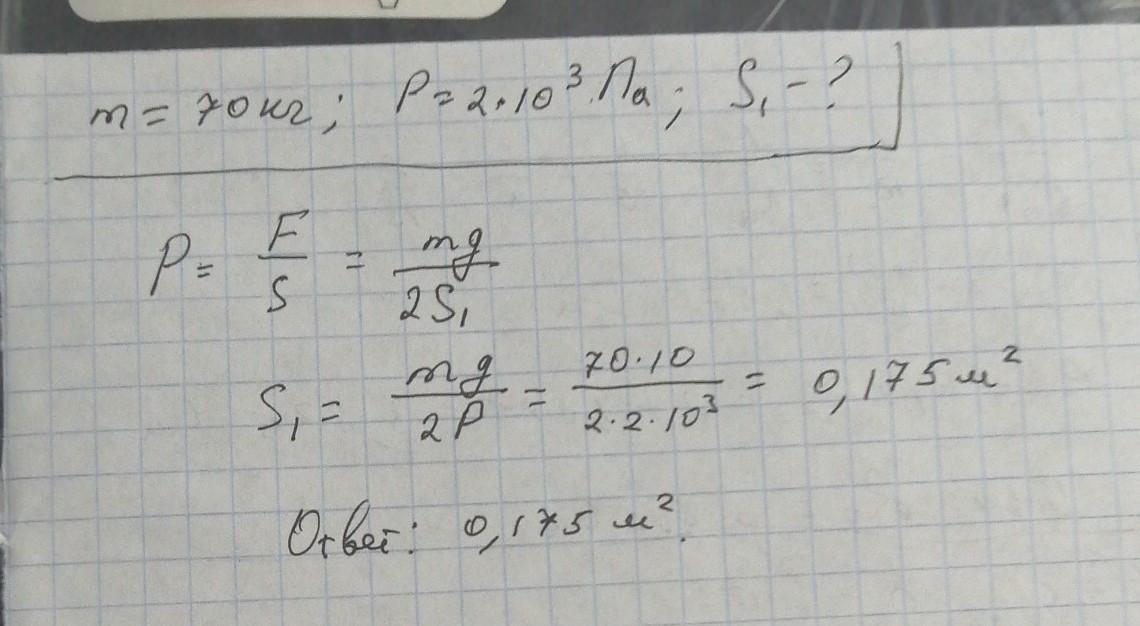 m = 70 кг; P = 2·10³ Па; S₁ - ?
P = F/S = mg/2S₁
S₁ = mg/2P = 70·10/2·2·10³ = 0,175 м²
Ответ: 0,175 м².